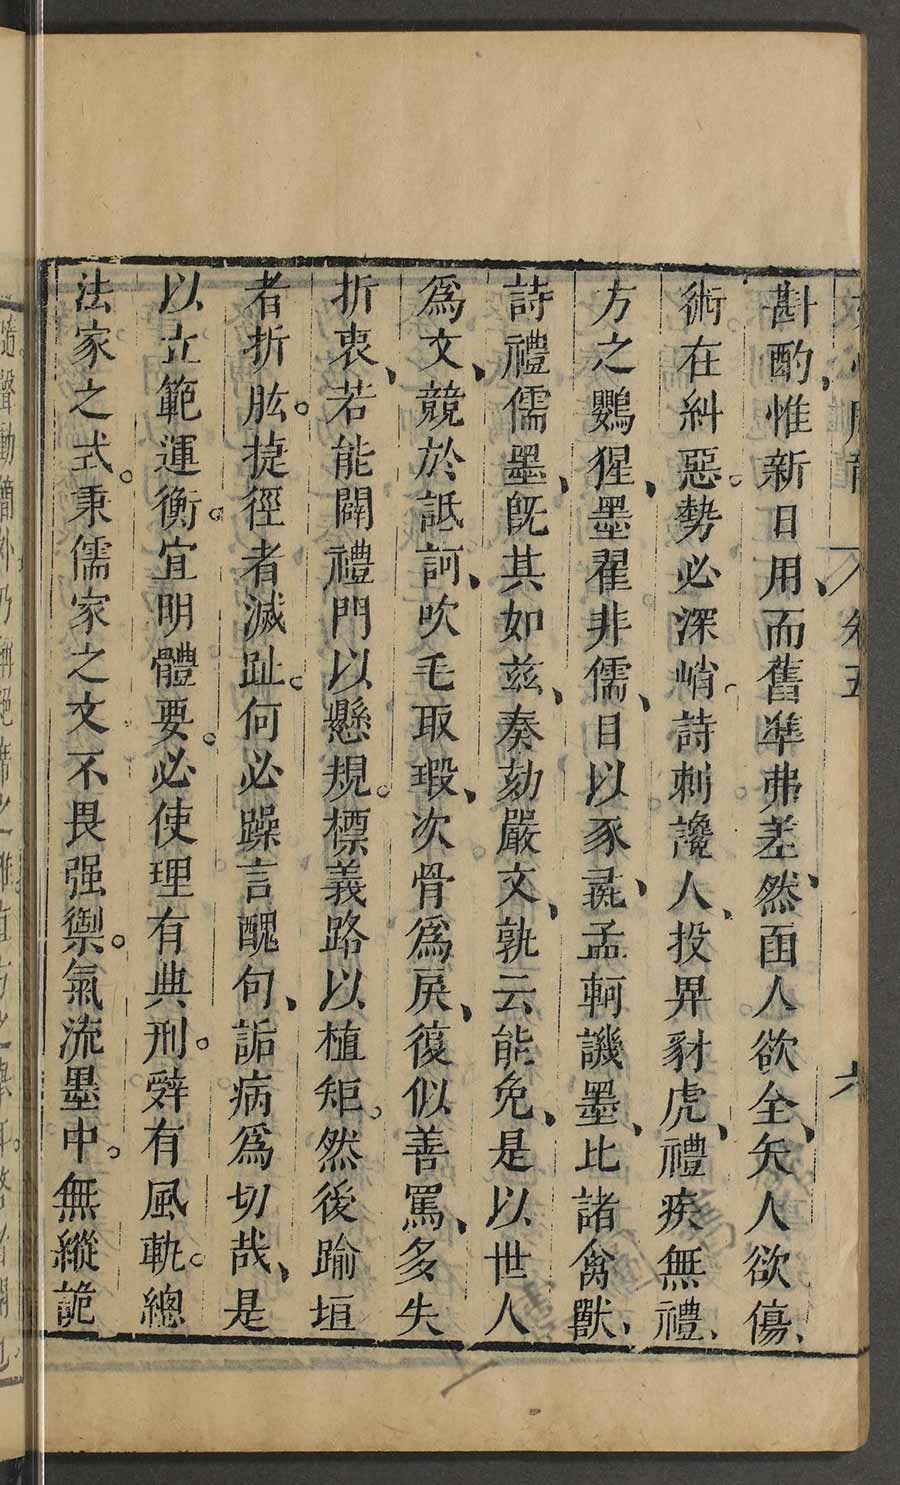 卷五
六
斟酌、惟新日用、而舊準弗差、然函人欲全、矢人欲傷、
術在糾惡。勢必深峭。詩刺讒人、投畀豺虎、禮疾無禮、
方之鸚猩、墨翟非儒、目以豕彘、孟軻譏墨、比諸禽獸、
詩禮儒墨、旣其如茲、奏劾嚴文、孰云能免、是以世人
爲文、競於詆訶、吹毛取瑕、次骨爲戾、復似善罵、多失
折衷、若能闢禮門以懸規。標義路以植矩。然後踰垣
者折肱。捷徑者滅趾。何必躁言醜句、詬病爲切哉、是
以立範運衡。宜明體要。必使理有典刑。辭有風軌。總
法家之式。秉儒家之文不畏强禦。氣流墨中。無縱詭